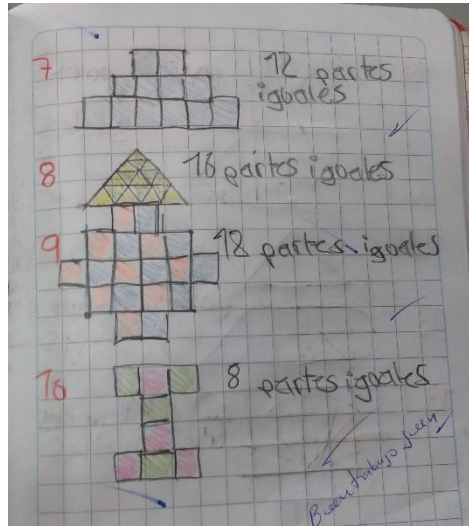 7 12 partes
igoales
8 16 partes igoales
9 18 partes igoales
10 8 partes igoales
Buen trabajo